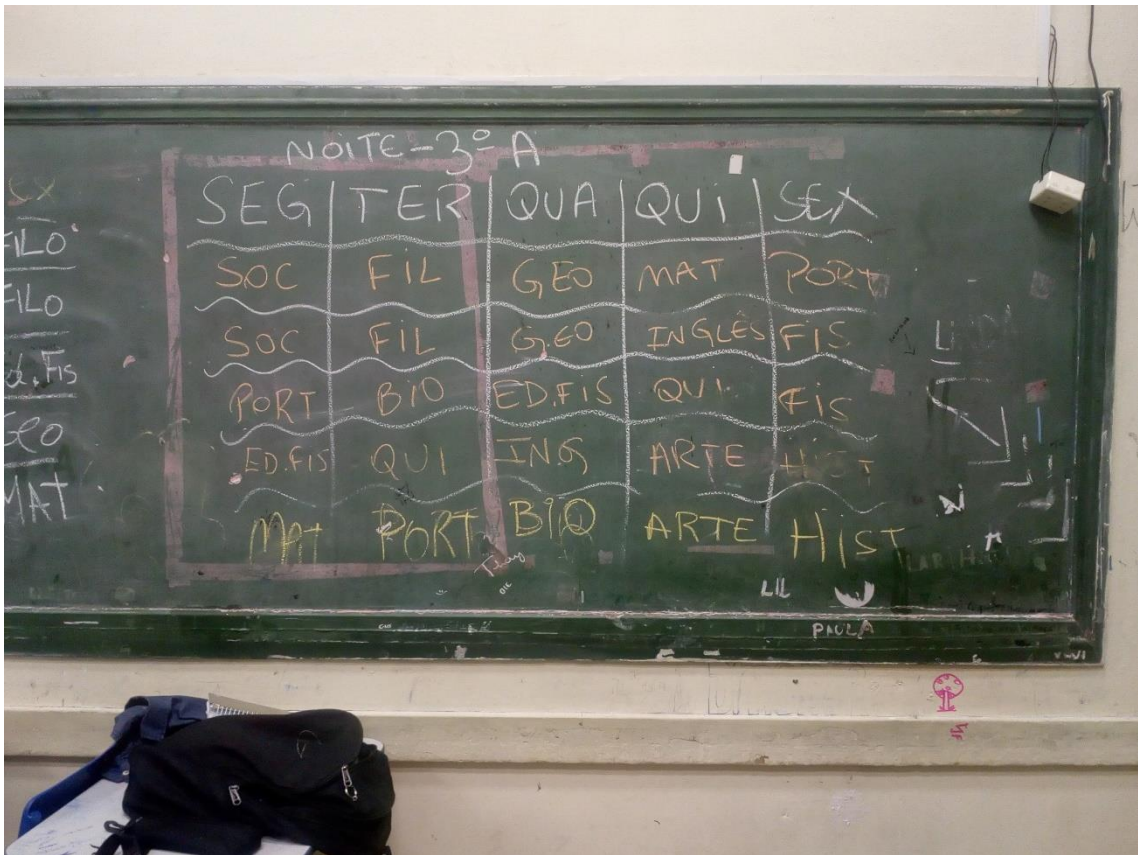 NOITE - 3º A
SEG TER QUA QUI SEX
SOC FIL GEO MAT PORT
SOC FIL GEO INGLÊS FIS
PORT BIO ED.FIS QUI. FIS
ED.FIS QUI ING ARTE HIST
MAT PORT BIO ARTE HIST
FILO
FILO
FIS
GEO
MAT
LIL
PAULA